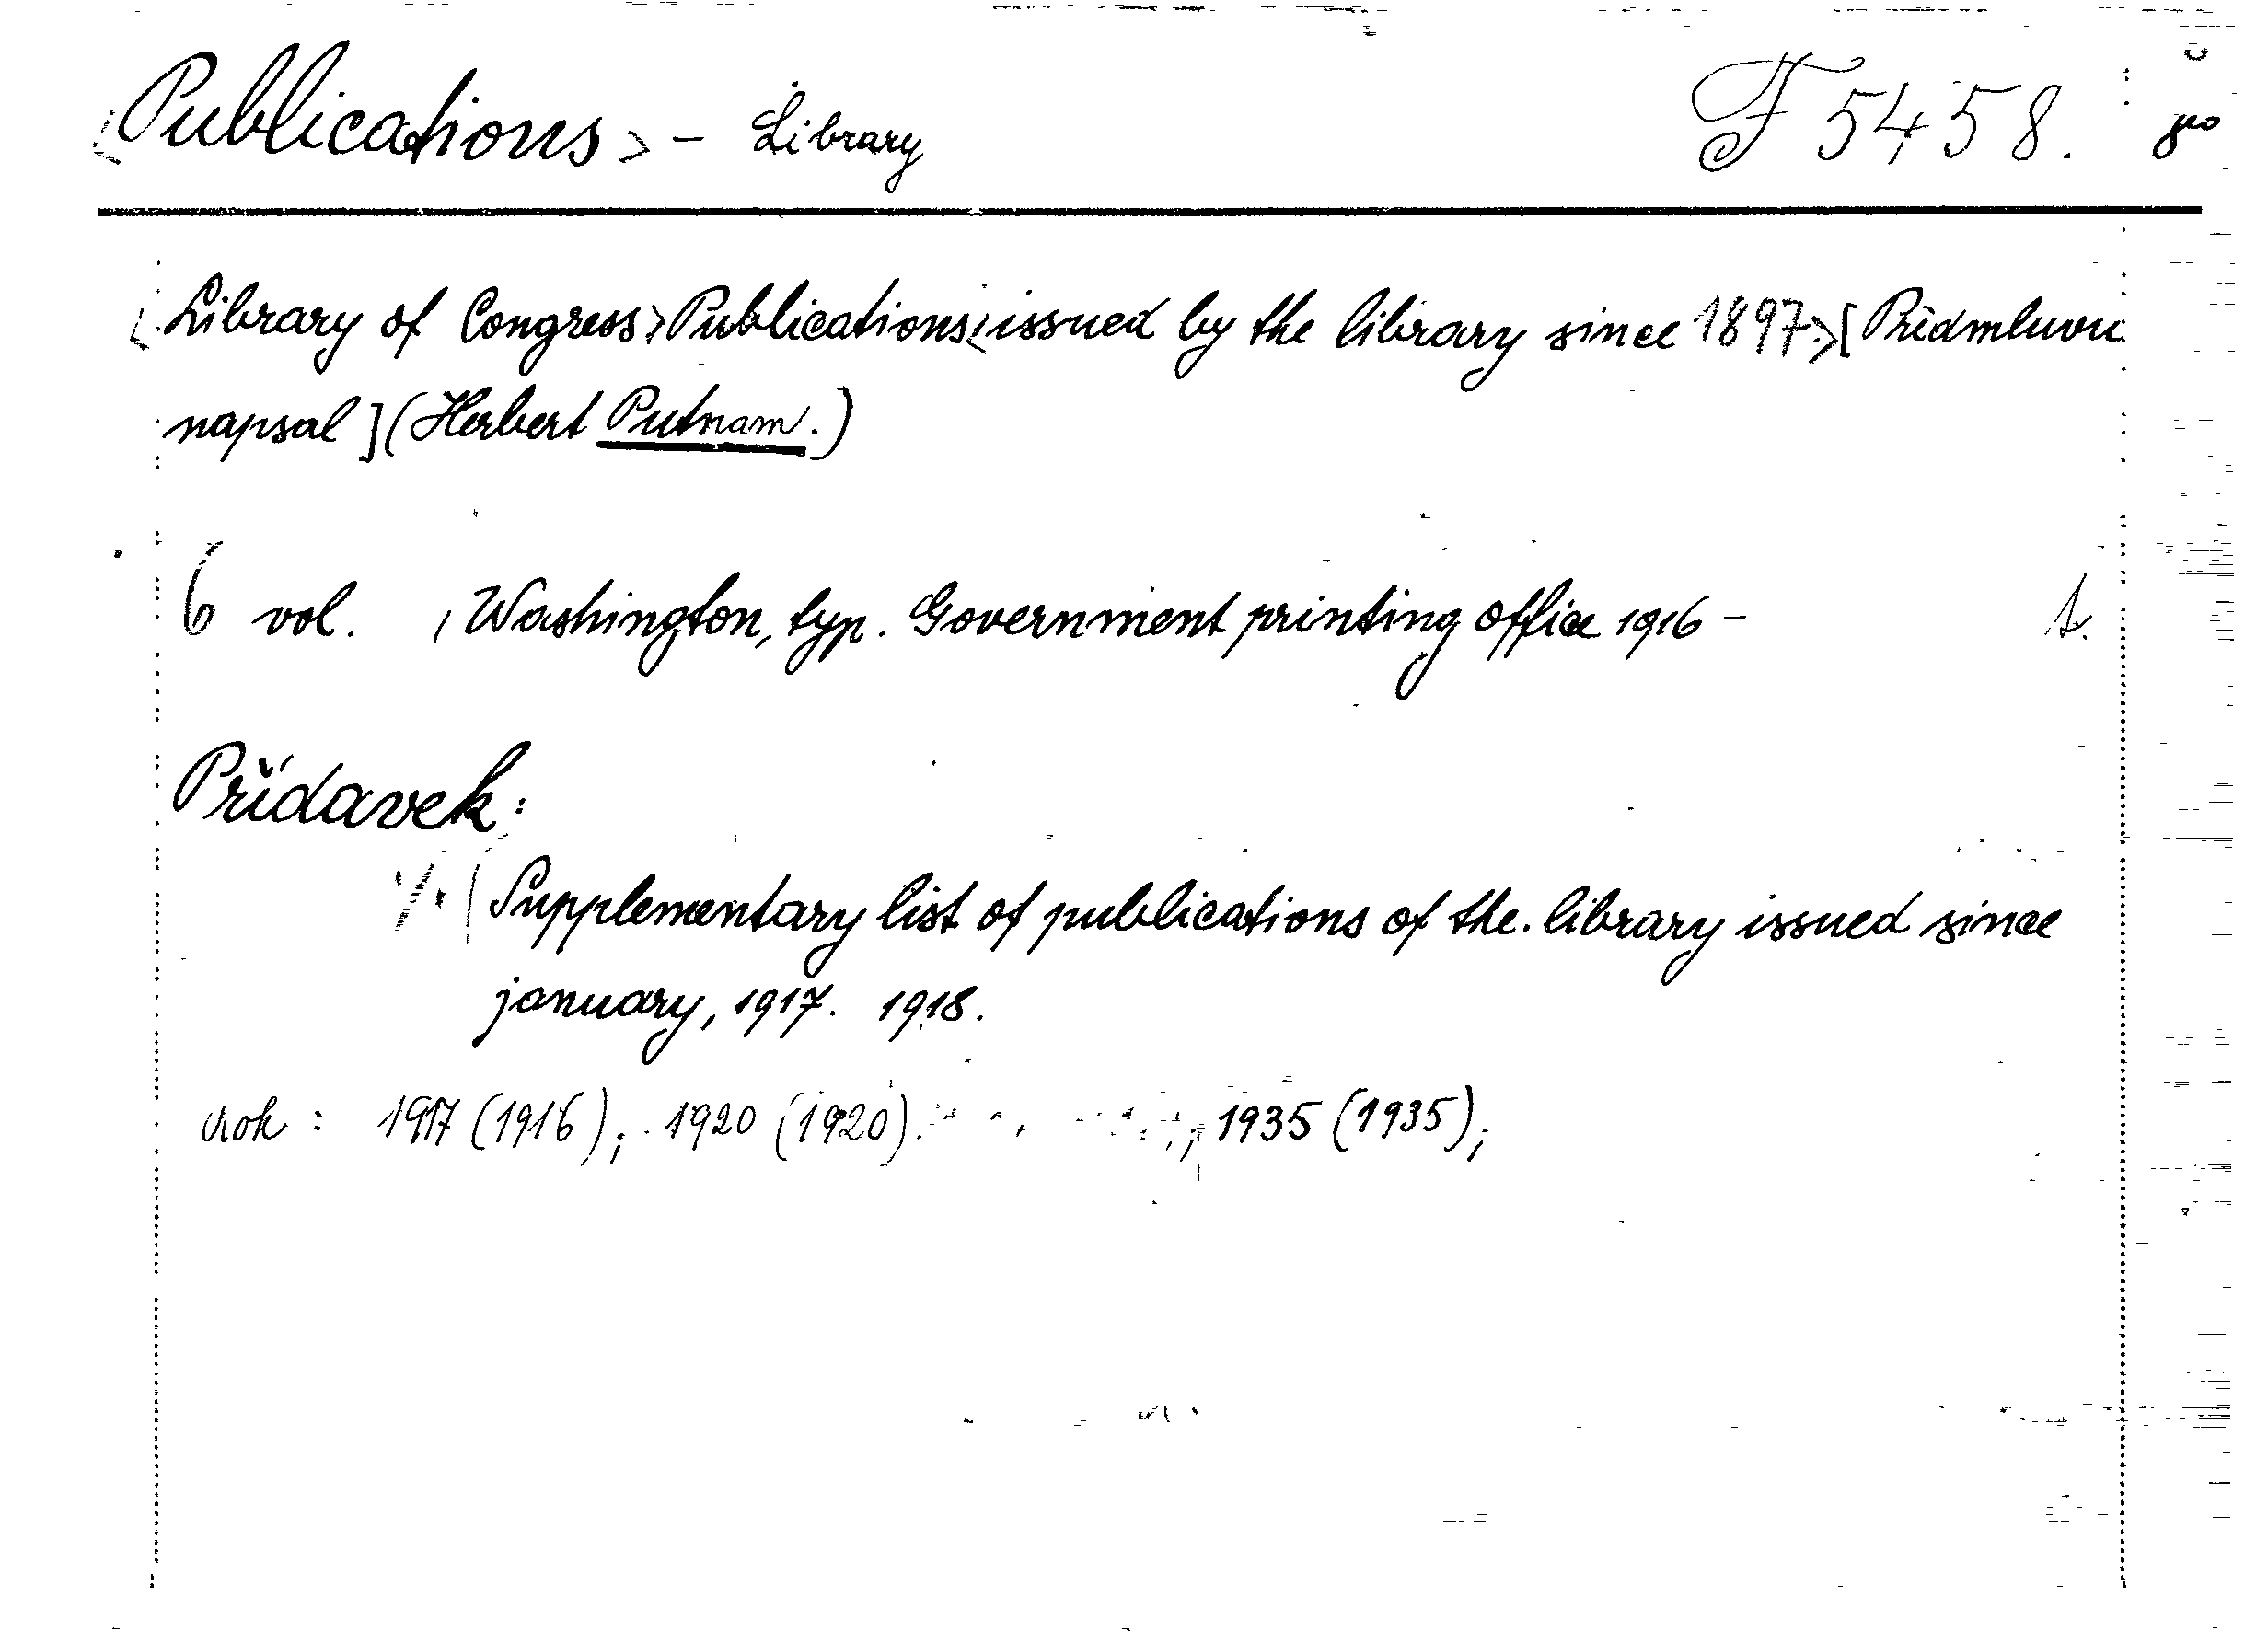 <Publications> - Library F 5458.
<Library of Congress> Publications <issued by the library since 1897.> [Předmluvu
napsal] (Herbert Putnam.)
6 vol. , Washington, typ. Government printing office 1916 - t.
Přídavek:
Supplementary list of publications of the library issued since
january, 1917. 1918.
rok: 1917 (1916); 1920 (1920). 1935 (1935);